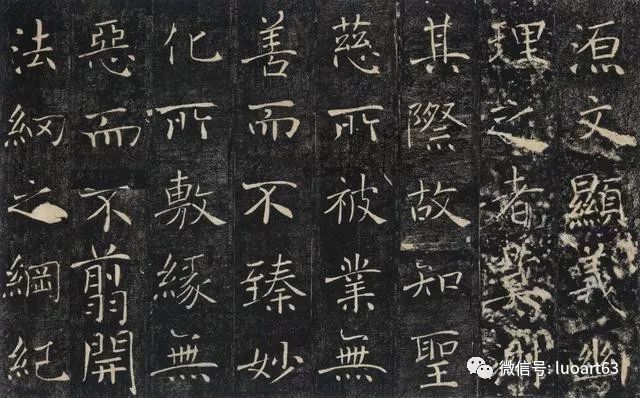 源文顯義幽
理之者莫測
其際故知聖
慈所被業無
善而不臻妙
化所敷緣無
惡而不翦開
法網之綱紀
微信号: luoart63